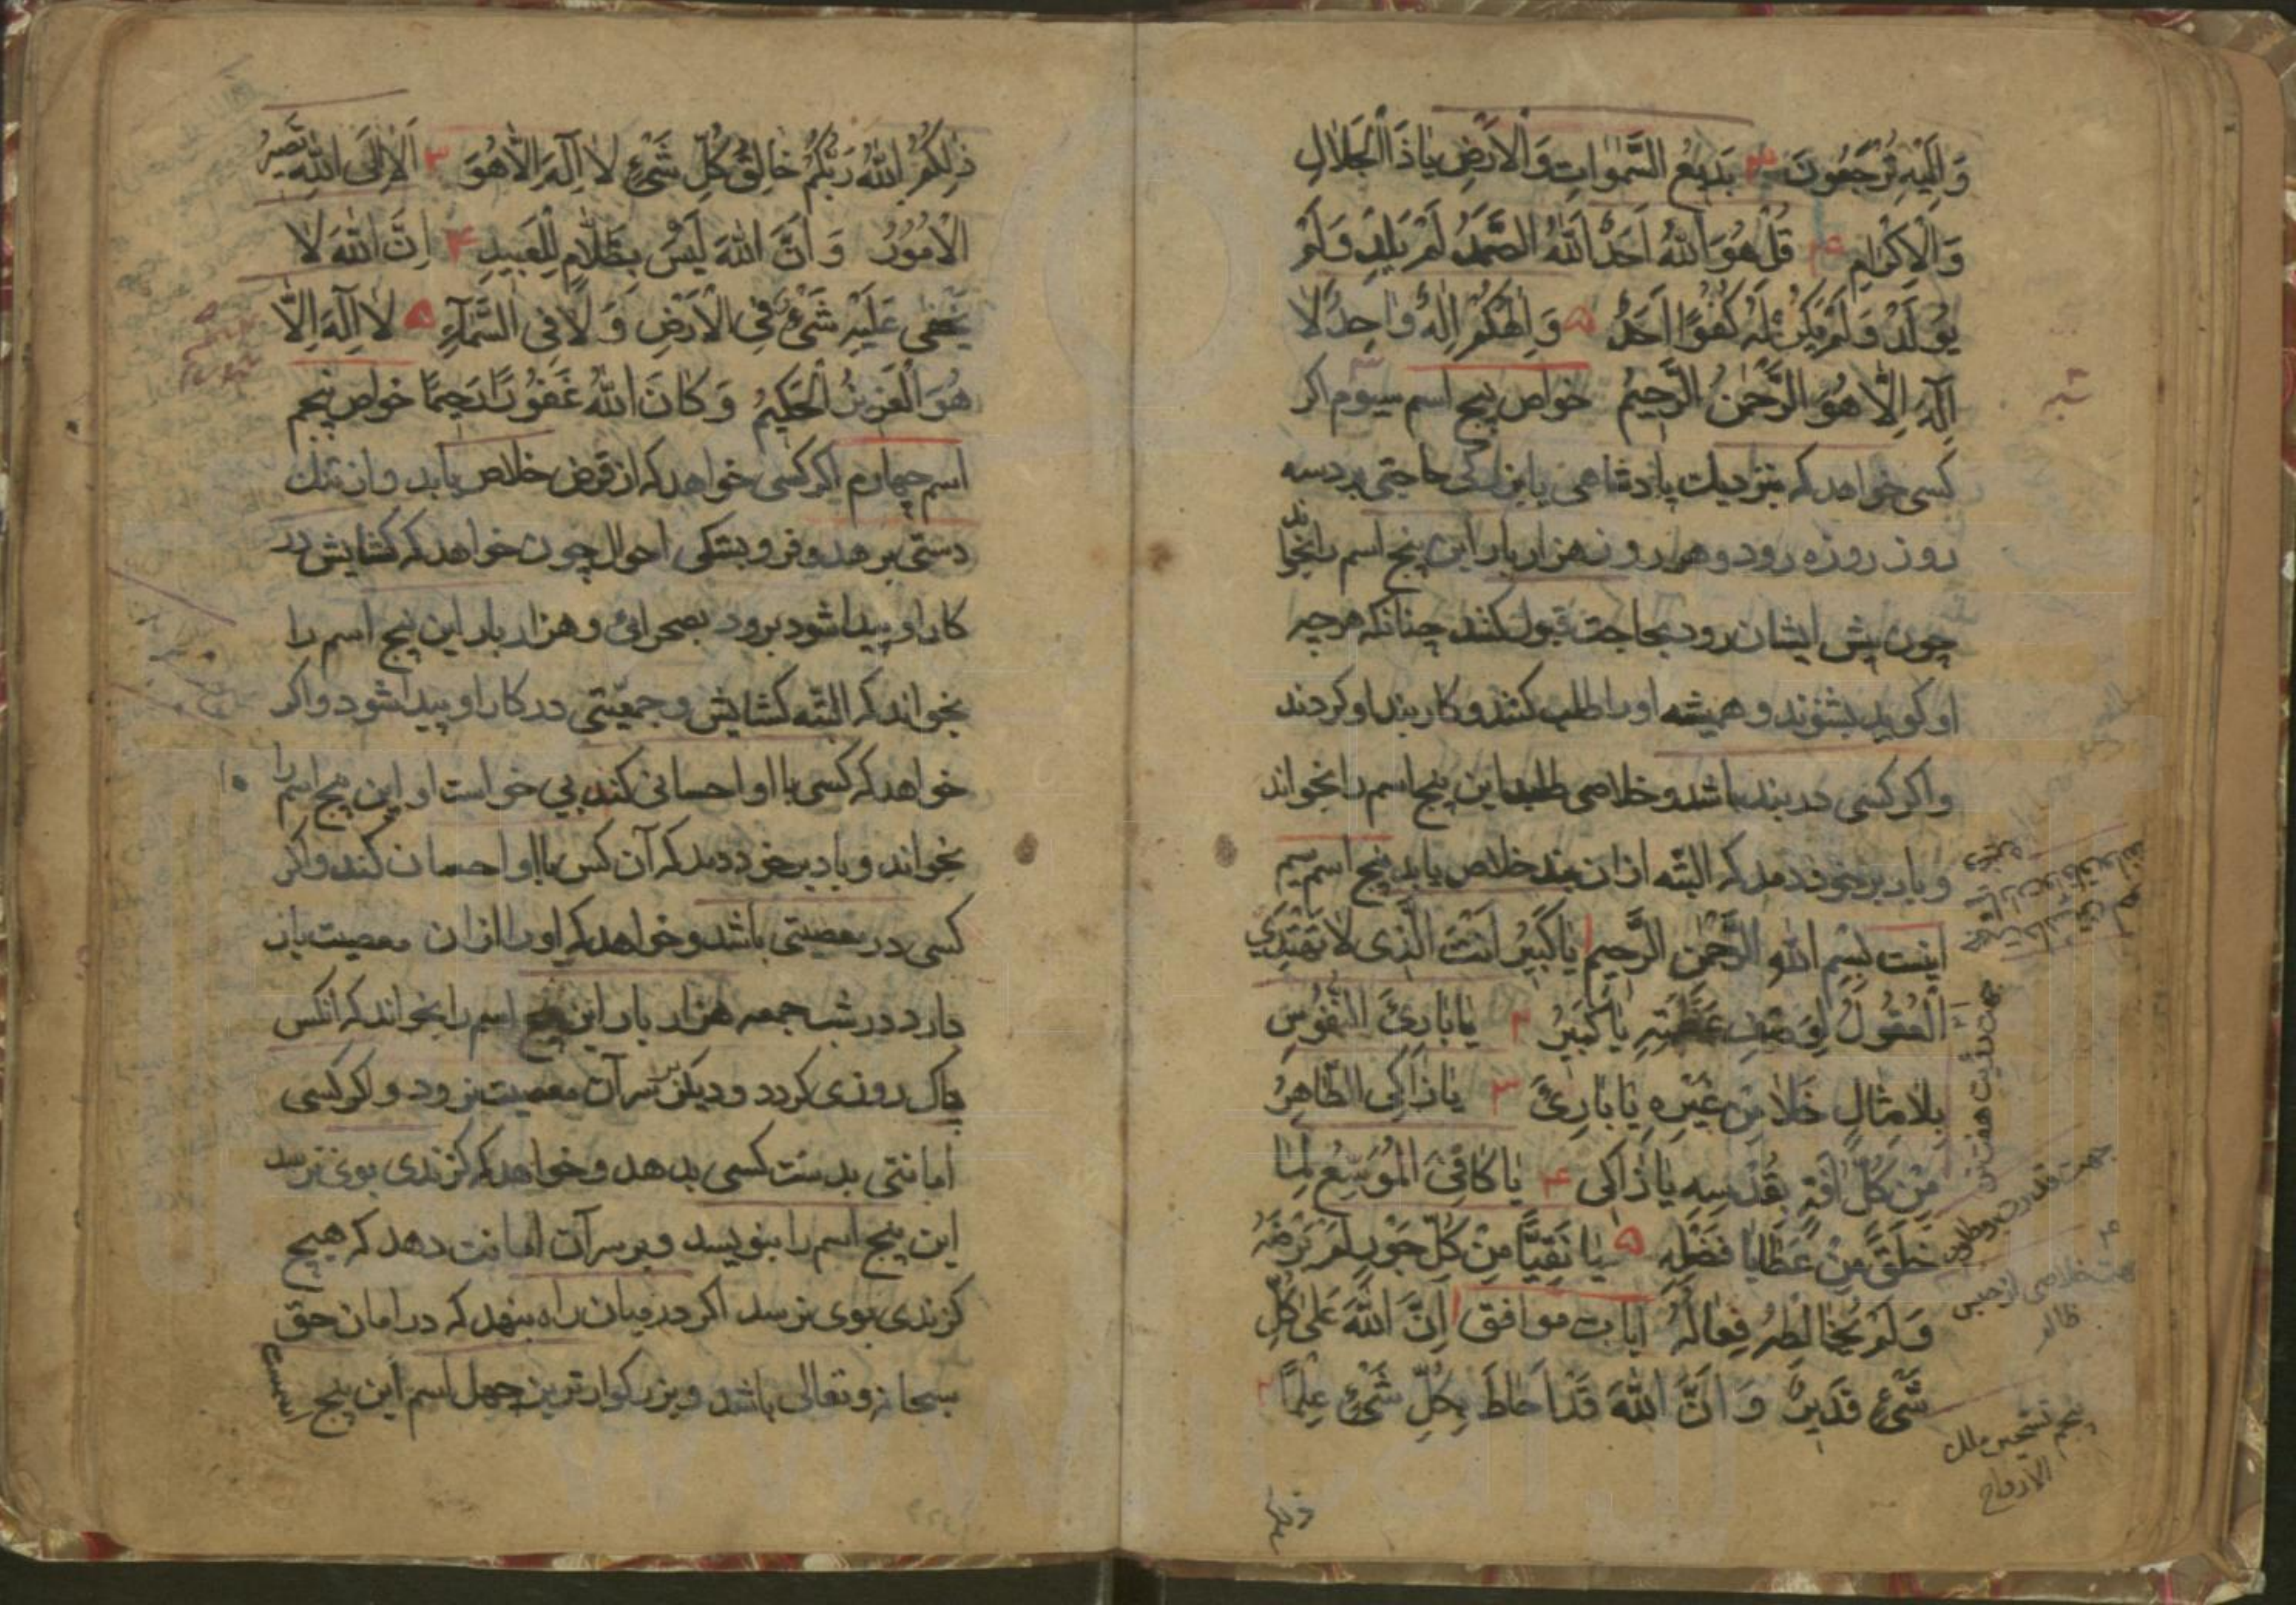 وَاِلَيْهِ تُرْجَعُونَ ٣ بَدِيعُ السَّمٰوَاتِ وَالْاَرْضِ يَاذَا الْجَلَالِ
وَالْاِكْرَامِ ٤ قُلْ هُوَ اللّٰهُ اَحَدٌ اَللّٰهُ الصَّمَدُ لَمْ يَلِدْ وَلَمْ
يُولَدْ وَلَمْ يَكُنْ لَهُ كُفُوًا اَحَدٌ ۵ وَاِلٰهُكُمْ اِلٰهٌ وٰاحِدٌ لَا
اِلٰهَ اِلَّا هُوَ الرَّحْمٰنُ الرَّحِيمُ خواص پنج اسم سیوم اکر
کسی خواهد که بنزدیك پادشاهی یا بزرکی حاجتی برد سه
روز روزه رود و هر روز هزار بار این پنج اسم را بخواند
چون پیش ایشان رود بحاجت قبول کنند چنانکه هرچه
او کوید بشنوند و همیشه او را طلب کنند و کاربند او کردند
و اکر کسی در بند باشد و خلاصی طلبد این پنج اسم را بخواند
و باد بر خود دمد که البته از ان بند خلاص یابد پنج اسم سیم
اینست بِسْمِ اللّٰهِ الرَّحْمٰنِ الرَّحِيمِ ١ يَا كَبِيرُ اَنْتَ الَّذِى لَا تَهْتَدِى
الْعُقُولُ لِوَصْفِ عَظَمَتِهِ يَا كَبِيرُ ٢ يَا بَارِئَ النُّفُوسِ
بِلَا مِثَالٍ خَلَا مِنْ غَيْرِهِ يَا بَارِئُ ٣ يَا زَاكِى الطَّاهِرُ
مِنْ كُلِّ اٰفَةٍ بِقُدْسِهِ يَا زَاكِى ٤ يَا كَافِىَ الْمُوَسِّعُ لِمَا
خَلَقَ مِنْ عَطَايَا فَضْلِهِ ۵ يَا نَقِيًّا مِنْ كُلِّ جَوْرٍ لَمْ يَرْضَهُ
وَلَمْ يُخَالِطْهُ فِعَالُهُ ایات موافق ١ اِنَّ اللّٰهَ عَلٰى كُلِّ
شَىْءٍ قَدِيرٌ وَاَنَّ اللّٰهَ قَدْ اَحَاطَ بِكُلِّ شَىْءٍ عِلْمًا ٢
جهت خلاصی از حبس
ظالم
ذلکم
ذٰلِكُمُ اللّٰهُ رَبُّكُمْ خَالِقُ كُلِّ شَىْءٍ لَا اِلٰهَ اِلَّا هُوَ ٣ اَلَا اِلَى اللّٰهِ تَصِيرُ
الْاُمُورُ وَاَنَّ اللّٰهَ لَيْسَ بِظَلَّامٍ لِلْعَبِيدِ ۴ اِنَّ اللّٰهَ لَا
يَخْفٰى عَلَيْهِ شَىْءٌ فِى الْاَرْضِ وَلَا فِى السَّمَآءِ ۵ لَا اِلٰهَ اِلَّا
هُوَ الْعَزِيزُ الْحَكِيمُ وَكَانَ اللّٰهُ غَفُورًا رَحِيمًا خواص پنج
اسم چهارم اکر کسی خواهد که از قرض خلاص یابد و از تنك
دستی برهد و فروبستکی احوال چون خواهد که کشایش در
کار او پیدا شود برود بصحرائی و هزار بار این پنج اسم را
بخواند که البته کشایش و جمعیتی در کار او پیدا شود و اکر
خواهد که کسی با او احسانی کند بی خواست او این پنج اسم را
بخواند و باد بر خود دمد که آن کس با او احسان کند و اکر
کسی در معصیتی باشد و خواهد که او را از ان معصیت باز
دارد در شب جمعه هزار بار این پنج اسم را بخواند که انکس
پاك روزی کردد و دیکر بسر آن معصیت نرود و اکر کسی
امانتی بدست کسی بدهد و خواهد که کزندی بوی نرسد
این پنج اسم را بنویسد و بر سر آن امانت دهد که هیچ
کزندی بوی نرسد اکر در میان راه بنهد که در امان حق
سبحانه و تعالی باشد و بزرکوارترین چهل اسم این پنج